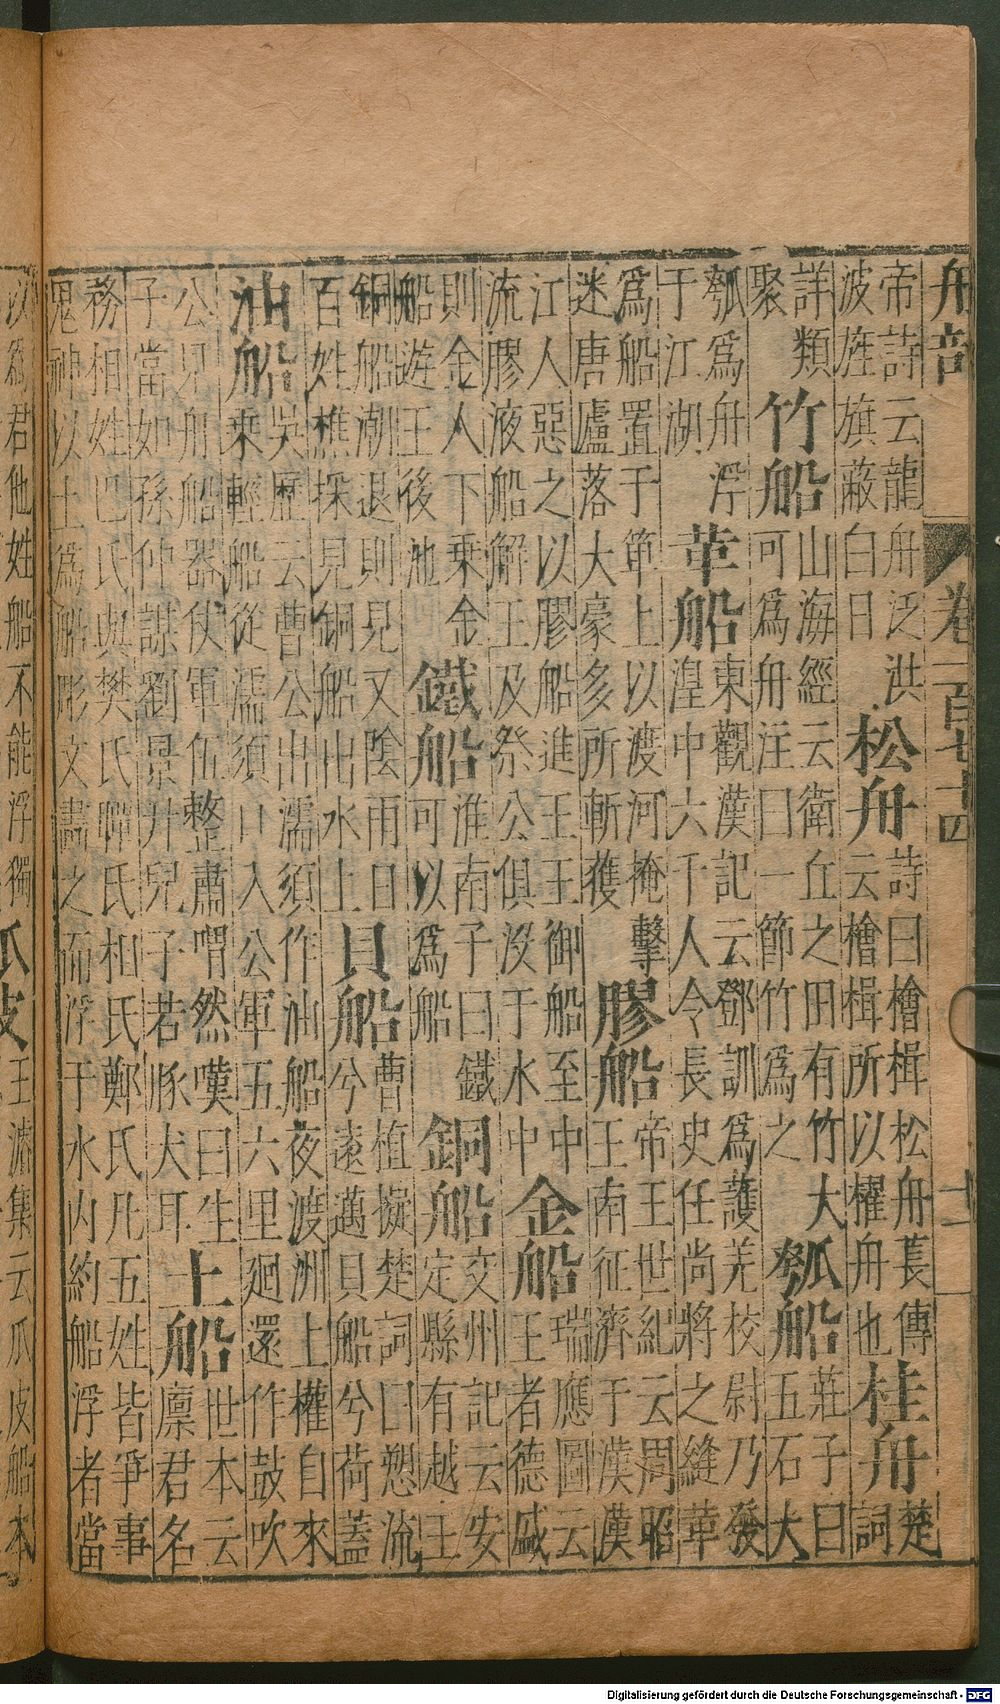 舟部 卷一百七十四 十一
帝詩云龍舟泛洪
波旌旗蔽白日
松舟
詩曰檜楫松舟萇傳
云檜楫所以櫂舟也
桂舟
楚
詞
詳類
聚
竹船
山海經云衛丘之田有竹大
可爲舟注曰一節竹爲之
瓠船
莊子曰
五石大
瓠爲舟浮
于江湖
革船
東觀漢記云鄧訓爲護羌校尉乃發
湟中六千人令長史任尚將之縫革
爲船置于箄上以渡河掩擊
迷唐廬落大豪多所斬獲
膠船
帝王世紀云周昭
王南征濟于漢漢
江人惡之以膠船進王王御船至中
流膠液船解王及祭公俱沒于水中
金船
瑞應圖云
王者德盛
則金人下乘金
船遊王後池
鐵船
淮南子曰鐵
可以爲船
銅船
交州記云安
定縣有越王
銅船潮退則見又陰雨日
百姓樵採見銅船出水上
貝船
曹植擬楚詞曰愬流
兮遠邁貝船兮荷蓋
油船
吳歷云曹公出濡須作油船夜渡洲上權自來
乘輕船從濡須口入公軍五六里廻還作鼓吹
公見舟船器仗軍伍整肅喟然嘆曰生
子當如孫仲謀劉景升兒子若豚犬耳
土船
世本云
廩君名
務相姓巴氏與樊氏瞫氏相氏鄭氏凡五姓皆爭事
鬼神以土爲船彫文畫之而浮于水内約船浮者當
以爲君他姓船不能浮獨
瓜皮
王濬集云瓜皮船本
Digitalisierung gefördert durch die Deutsche Forschungsgemeinschaft - DFG